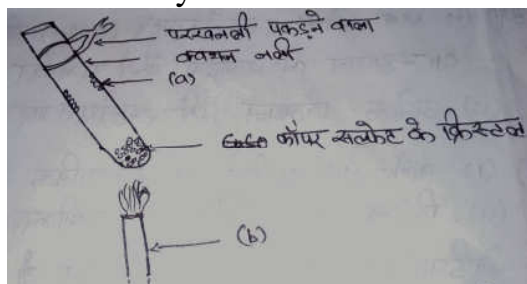 परखनली पकड़ने वाला
क्वथन नली
(a)
कॉपर सल्फेट के क्रिस्टल
(b)